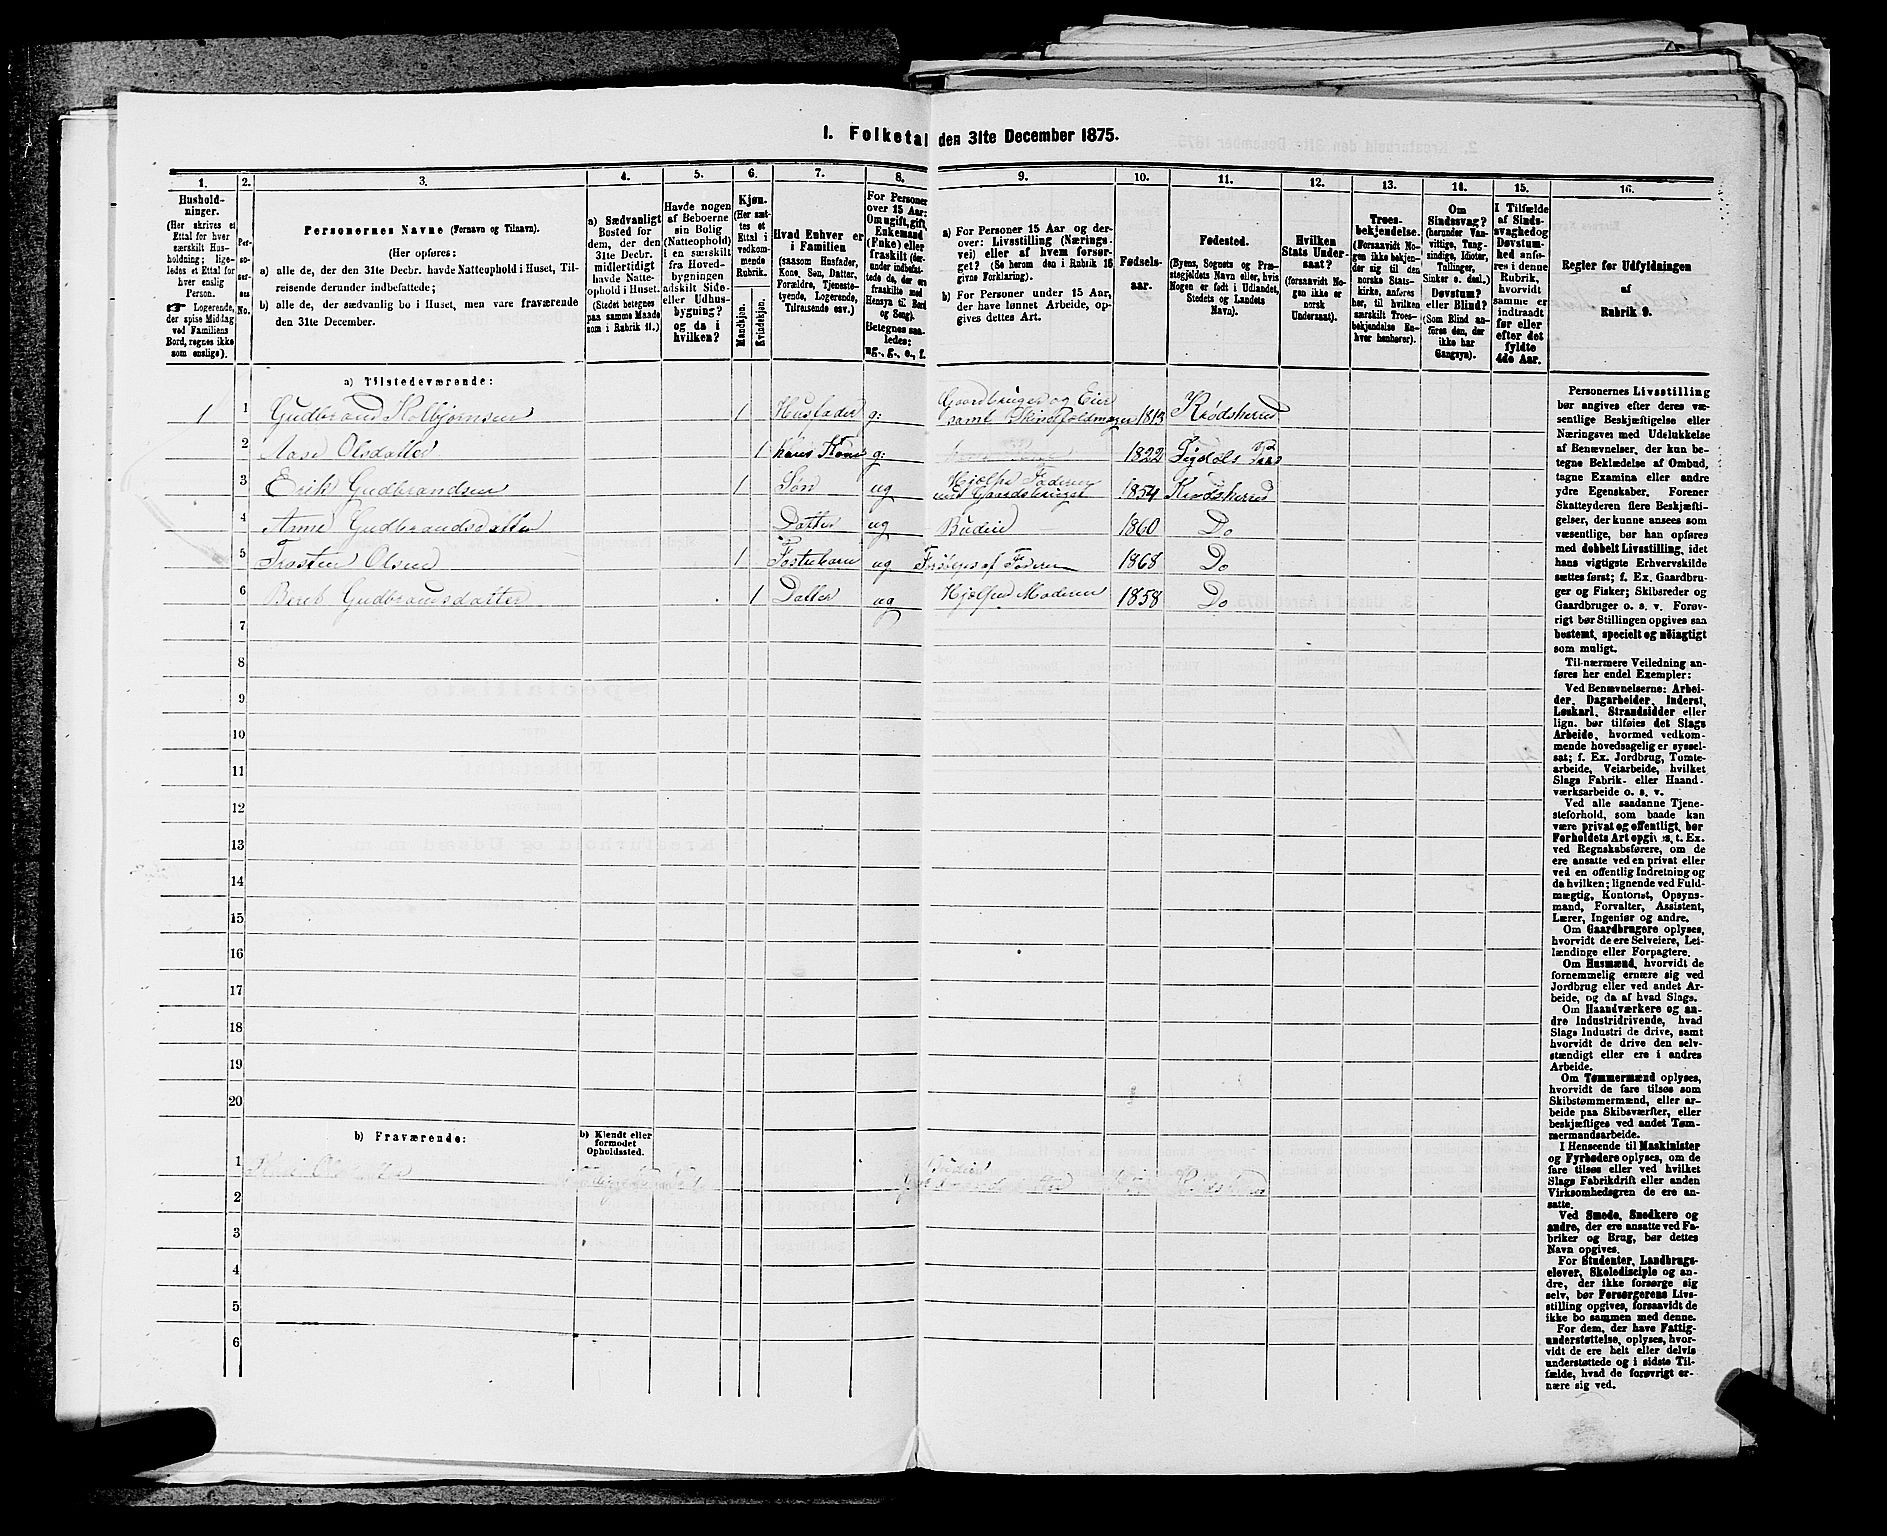 I. Folketal den 31te December 1875.
1. 2. 3. 4. 5. 6. 7. 8. 9. 10. 11. 12. 13. 14. 15. 16.
Hushold-
ninger.
(Her skrives et
Ettal for hver
særskilt Hus-
holdning; lige-
ledes et Ettal for
hver enslig
Person.
☞ Logerende,
der spise Middag
ved Familiens
Bord, regnes ikke
som enslige).
Per-
so-
ner-
nes
No.
Personernes Navne (Fornavn og Tilnavn).
(Her opføres:
a) alle de, der den 31te Decbr. havde Natteophold i Huset, Til-
reisende derunder indbefattede;
b) alle de, der sædvanlig bo i Huset, men vare fraværende
den 31te December.
a) Sædvanligt
Bosted for
dem, der den
31te Decbr.
midlertidigt
havde Natte-
ophold i Huset.
(Stedet betegnes
paa samme Maade
som i Rubrik 11.)
Havde nogen
af Beboerne
sin Bolig
(Natteophold)
i en særskilt
fra Hoved-
bygningen
adskilt Side-
eller Udhus-
bygning?
og da i
hvilken?
Kjøn.
(Her sæt-
tes et
Ettal i
vedkom-
mende
Rubrik.
Mandkjøn.
Kvindekjøn.
Hvad Enhver er
i Familien
(saasom Husfader,
Kone, Søn, Datter,
Forældre, Tjeneste-
tyende, Logerende,
Tilreisende osv.)
For Personer
over 15 Aar:
Om ugift, gift,
Enkemand
(Enke) eller
fraskilt (der-
under indbefat-
tede de, der ere
fraskilte med
Hensyn til Bord
og Seng).
Betegnes saa-
ledes:
ug., g., e., f.
a) For Personer 15 Aar og der-
over: Livsstilling (Nærings-
vei) eller af hvem forsør-
get? (Se herom den i Rubrik 16
givne Forklaring).
b) For Personer under 15 Aar,
der have lønnet Arbeide, op-
gives dettes Art.
Fødsels-
aar.
Fødested.
(Byens, Sognets og Præ-
stegjeldets Navn eller, hvis
Nogen er født i Udlandet,
Stedets og Landets
Navn).
Hvilken
Stats Under-
saat?
(forsaavidt No-
gen ikke er
norsk
Undersaat).
Troes-
bekjendelse.
(Forsaavidt No-
gen ikke bekjen-
der sig til den
norske Stats-
kirke, anføres
her, til hvilken
særskilt Troes-
bekjendelse En-
hver henhører).
Om
Sindssvag?
(herunder Van-
vittige, Tung-
sindige, Idioter,
Tullinger,
Sinker o. desl.)
Døvstum?
eller Blind?
(Som Blind an-
føres den, der
ikke har
Gangsyn).
I Tilfælde
af Sinds-
svaghed og
Døvstum-
hed anfø-
res i denne
Rubrik,
hvorvidt
samme er
indtraadt
før eller
efter det
fyldte
4de Aar.
Regler for Udfyldningen
af
Rubrik 9.
a) Tilstedeværende:
1 1 Gudbrand Kolbjørnsen 1 Husfader g: Gaardbruger og Eier samt 1813 Krødsherred
2 Aase Olsdatter 1 hans Kone g: 1822 Sigdals
3 Erik Gudbrandsen 1 Søn ug Hjælper Faderen med Gaardsbruget 1854 Krødsherred
4 Anne Gudbrandsdatter Datter ug Budeie 1860 Do
5 Trosten Olsen 1 Fostebarn ug Forsørges af Faderen 1868 Do
6 Beret Gudbrandsdatter 1 Datter ug Hjælper Moderen 1858 Do
7
8
9
10
11
12
13
14
15
16
17
18
19
20
b) Fraværende:
b) Kjendt eller
formodet
Opholdssted.
1
Budeie
2
3
4
5
6
Personernes Livsstilling
bør angives efter deres væ-
sentlige Beskjæftigelse eller
Næringsvei med Udelukkelse
af Benævnelser, der kun be-
tegne Beklædelse af Ombud,
tagne Examina eller andre
ydre Egenskaber. Forener
Skatteyderen flere Beskjæfti-
gelser, der kunne ansees som
væsentlige, bør han opføres
med dobbelt Livsstilling, idet
hans vigtigste Erhvervskilde
sættes først; f. Ex. Gaardbru-
ger og Fisker; Skibsreder og
Gaardbruger o. s. v. Forøv-
rigt bør Stillingen opgives saa
bestemt, specielt og nøiagtigt
som muligt.
Til nærmere Veiledning an-
føres her endel Exempler:
Ved Benævnelserne: Arbei-
der, Dagarbeider, Inderst,
Løskarl, Strandsidder eller
lign. bør tilføies det Slags
Arbeide, hvormed vedkom-
mende hovedsagelig er syssel-
sat; f. Ex. Jordbrug, Tomte-
arbeide, Veiarbeide, hvilket
Slags Fabrik- eller Haand-
værksarbeide o. s. v.
Ved alle saadanne Tjene-
steforhold, som baade kan
være privat og offentligt, bør
Forholdets Art opgives, t. Ex.
ved Regnskabsførere, om de
ere ansatte ved en privat eller
ved en offentlig Indretning og
da hvilken; lignende ved Fuld-
mægtig, Kontorist, Opsyns-
mand, Forvalter, Assistent,
Lærer, Ingeniør og andre.
Om Gaardbrugere oplyses,
hvorvidt de ere Selveiere, Lei-
lændinge eller Forpagtere.
Om Husmænd, hvorvidt de
fornemmelig ernære sig ved
Jordbrug eller ved andet Ar-
beide, og da af hvad Slags.
Om Haandværkere og an-
dre Industridrivende, hvad
Slags Industri de drive, samt
hvorvidt de drive den selv-
stændigt eller ere i andres
Arbeide.
Om Tømmermænd oplyses,
hvorvidt de fare tilsøs som
Skibstømmermænd, eller ar-
beide paa Skibsværfter, eller
beskjæftiges ved andet Tøm-
mermandsarbeide.
I Henseende til Maskinister
og Fyrbødere oplyses, om de
fare tilsøs eller ved hvilket
Slags Fabrikdrift eller anden
Virksomhedsgren de ere an-
satte.
Ved Smede, Snedkere og
andre, der ere ansatte ved Fa-
briker og Brug, bør dettes
Navn opgives.
For Studenter, Landbrugs-
elever, Skoledisciple og an-
dre, der ikke forsørge sig
selv, bør Forsørgerens Livs-
stilling opgives, forsaavidt de
ikke bo sammen med denne.
For dem, der have Fattig-
understøttelse, oplyses, hvor-
vidt de ere helt eller delvis
understøttede og i sidste Til-
fælde, hvad de forøvrigt er-
nære sig ved.